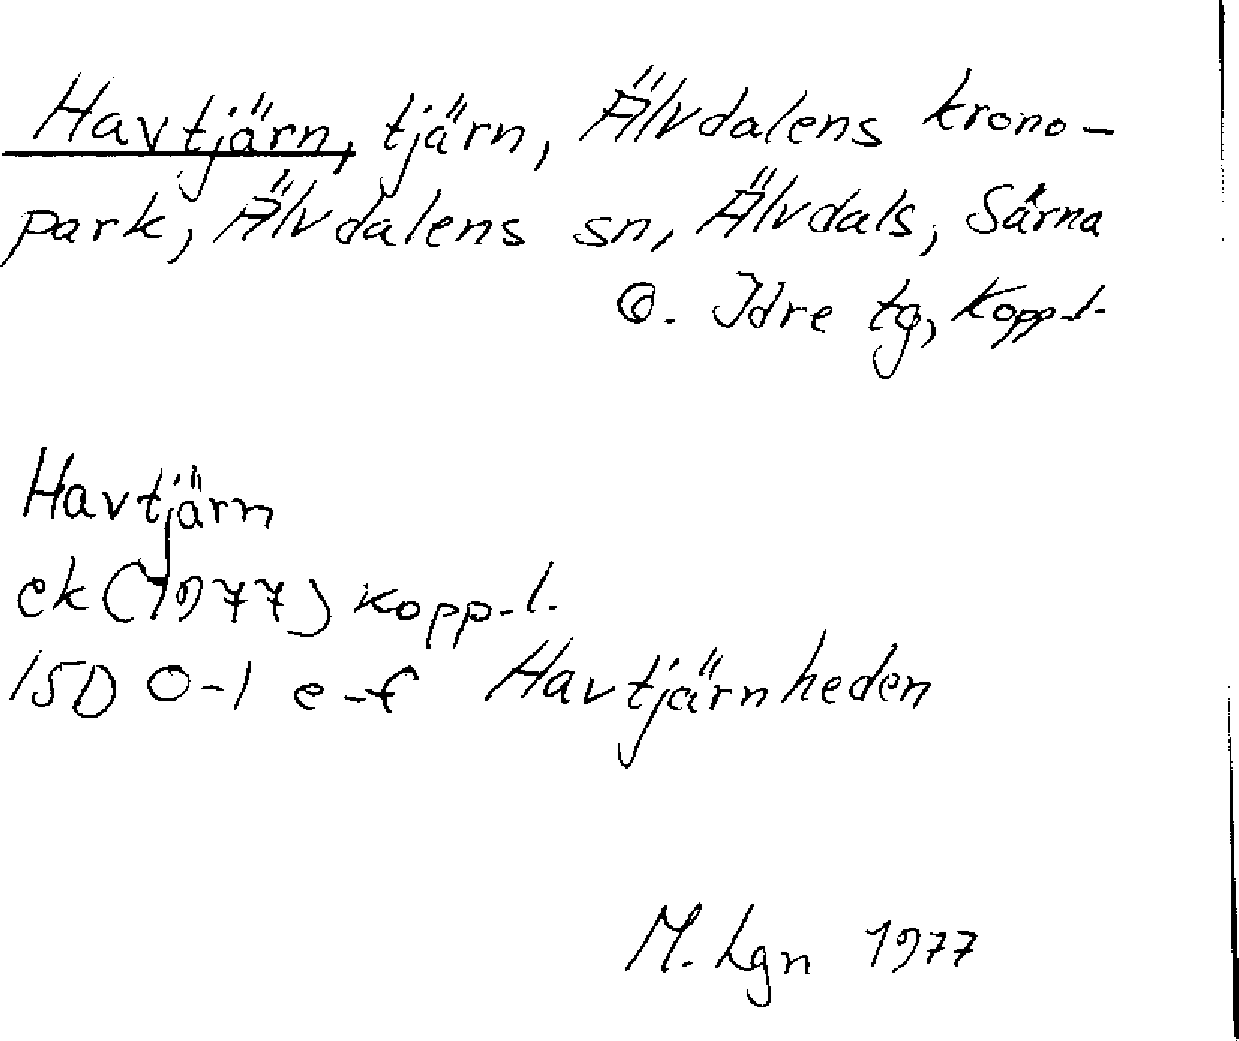 Havtjärn, tjärn, Älvdalens krono-
park, Älvdalens sn, Älvdals, Särna
o. Idre tg, Kopp.l.
Havtjärn
ek (1977) Kopp.l.
15D 0-1 e-f Havtjärnheden
M. Lgn 1977